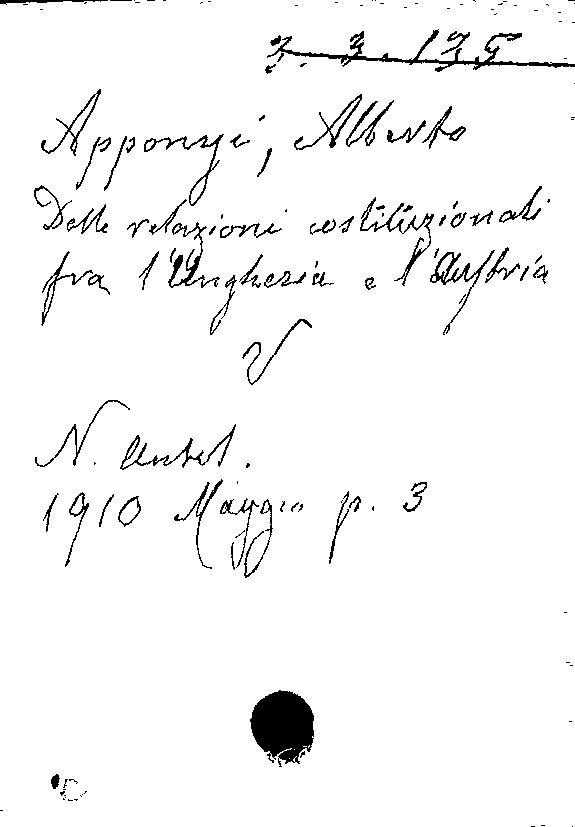 3. 3. 135
Apponyi, Alberto
Delle relazioni costituzionali
fra l'Ungheria e l'Austria
V
N. Antol.
1910 Maggio p. 3